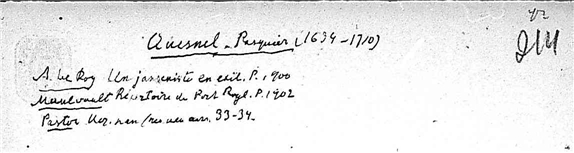 42
Quesnel - Pasquier (1634-1710)
211
A. Le Roy Un janseniste en exil. P. 1900
Maulvault Répertoire de Port Royl. P. 1902
Pastor 33-34.